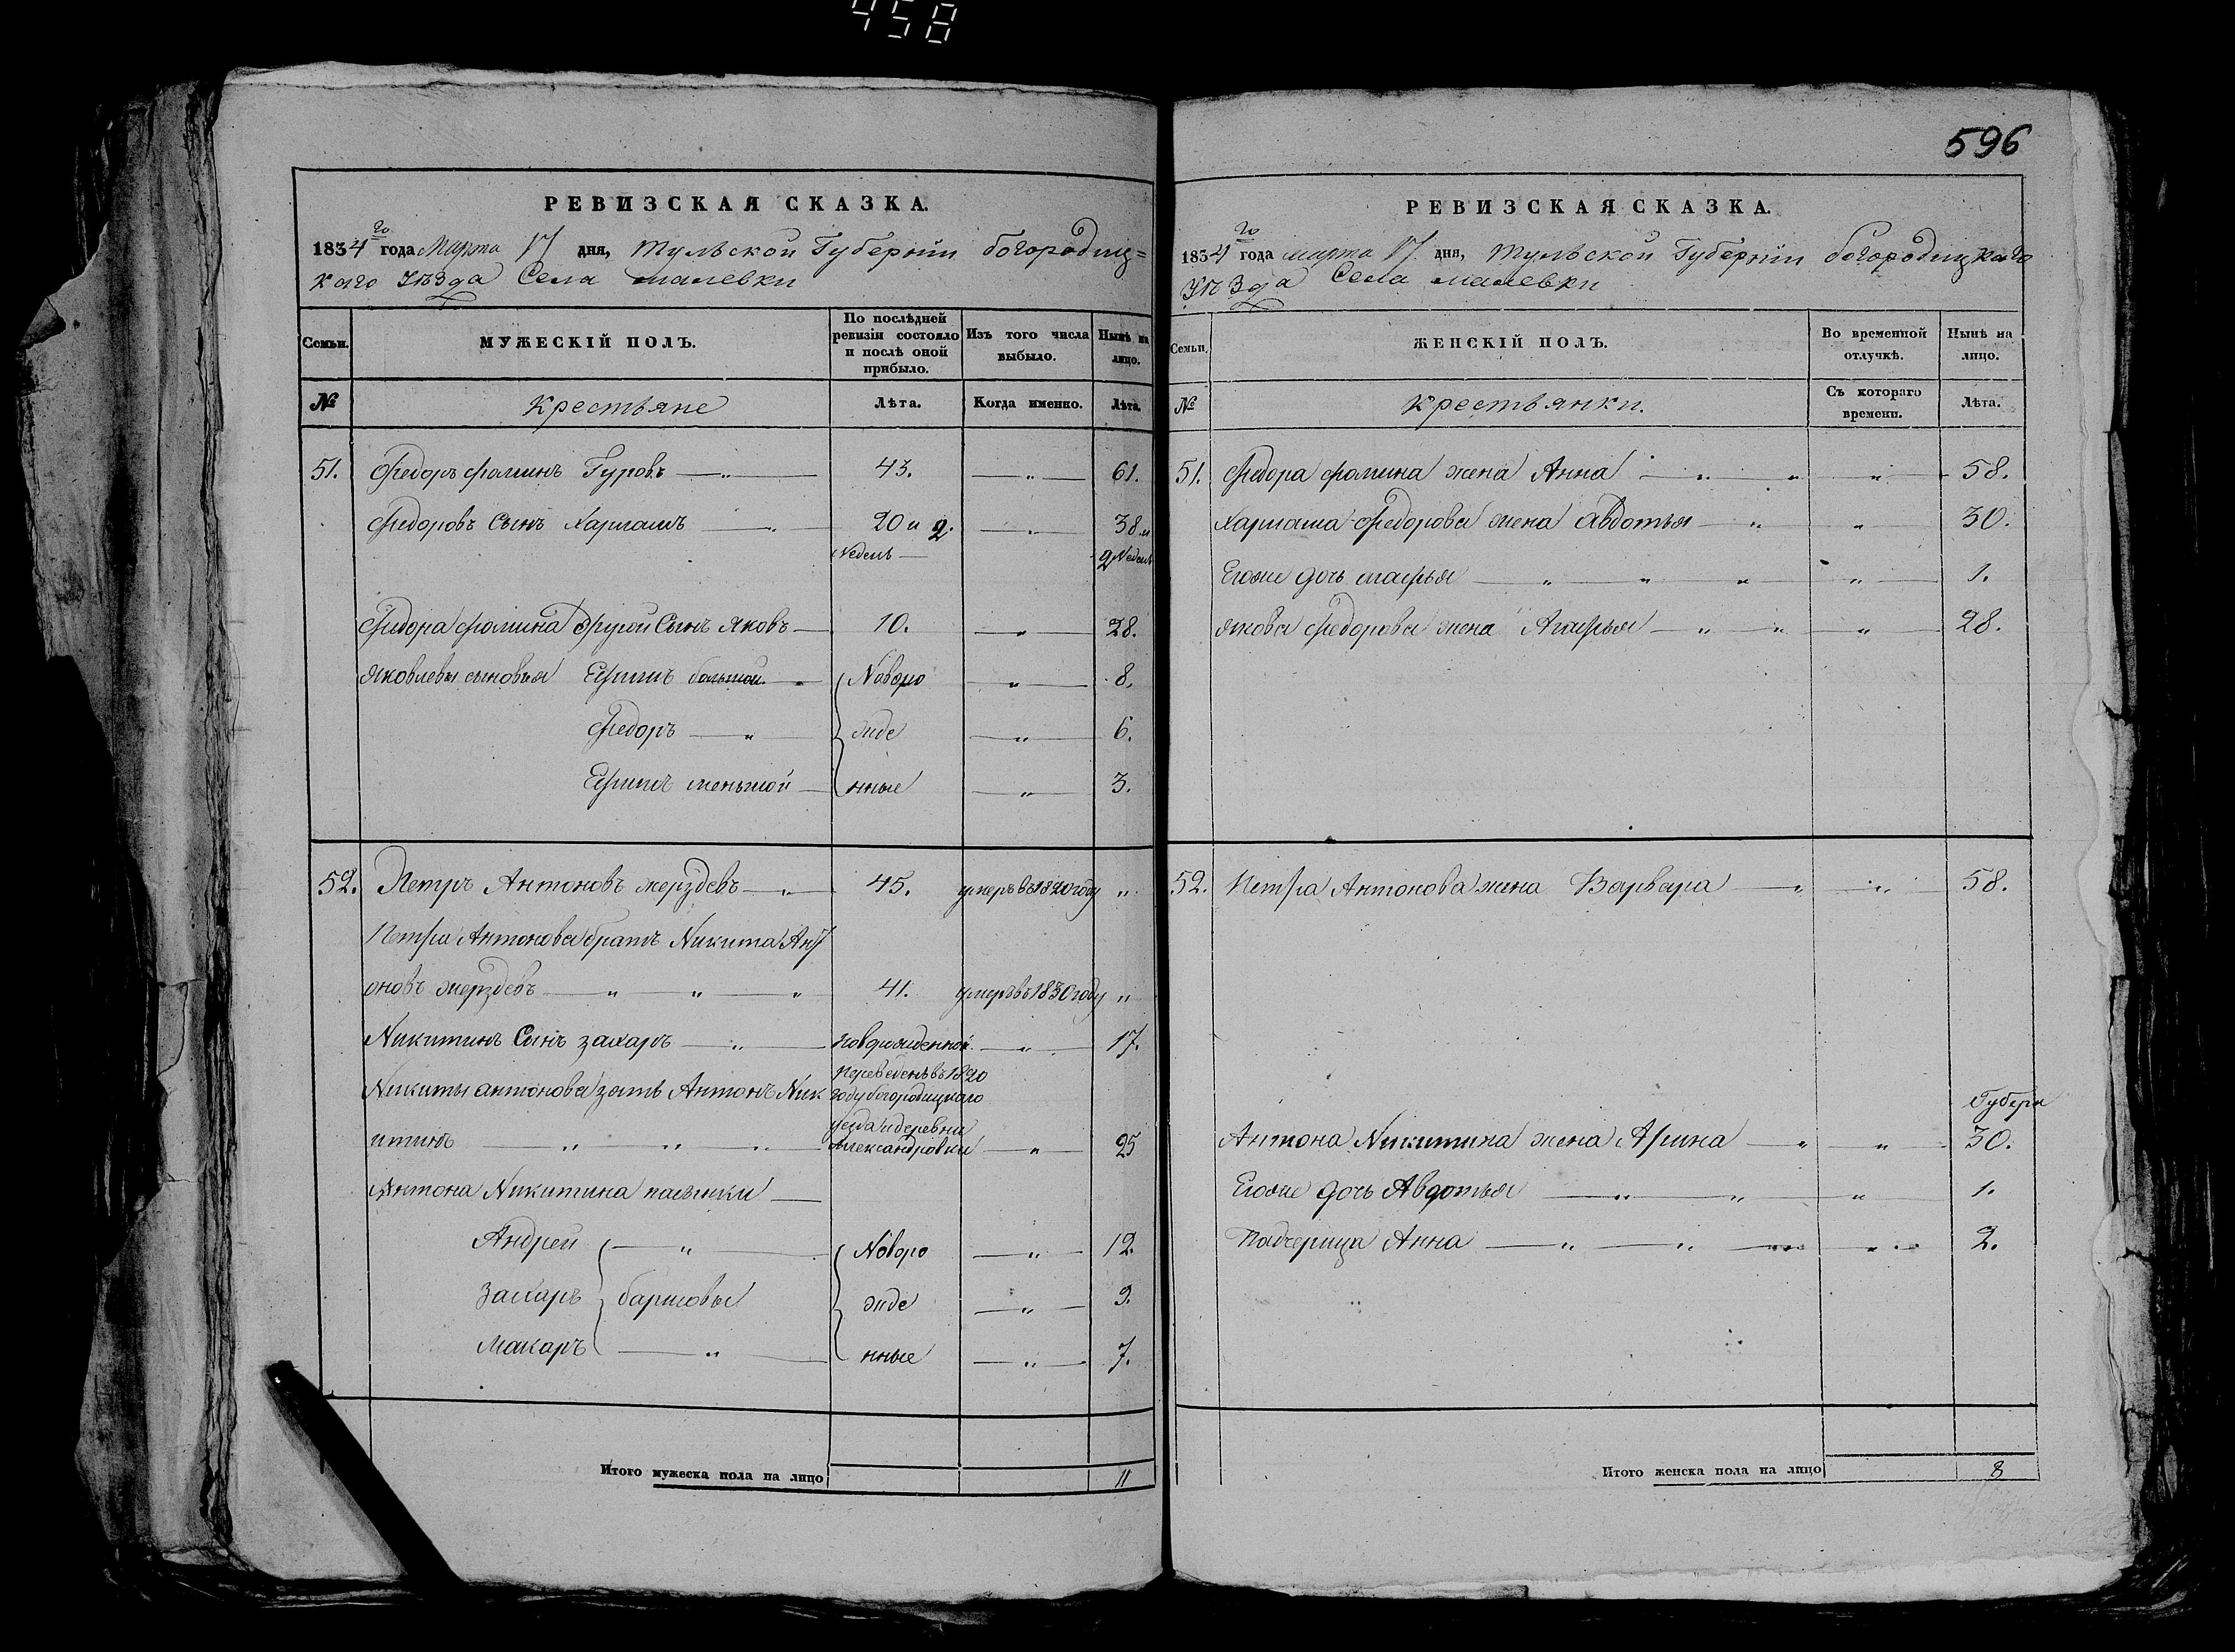 458
596
РЕВИЗСКАЯ СКАЗКА.
1834го года Марта 17 дня, Тульской Губернiи богородиц=
каго Уѣзда Села малевки
Семьи.
МУЖЕСКІЙ ПОЛЪ.
По послѣдней ревизіи состояло и послѣ оной прибыло.
Изъ того числа выбыло.
Нынѣ на лицо.
№
Крестьяне
Лѣта.
Когда именно.
Лѣта.
51. Федоръ фоминъ Гуровъ 43. 61.
Федоровъ Сынъ Харламъ 20 и 2. 38 и
Nедель 2 Nедель
Федора фомина другой Сынъ Яковъ 10. 28.
Яковлевы сыновья Ефимъ большой Nоворо 8.
Федоръ жде 6.
Ефимъ меньшой нные 3.
52. Петръ Антоновъ жерздевъ 45. умеръ въ 1820 году
Петра Антонова братъ Nикита Ант
оновъ жерздевъ 41. умеръ въ 1830 году
Nикитинъ Сынъ захаръ новорожденной 17.
Nикиты антонова зять Антонъ Nик переведенъ въ 1820
году богородицкаго
итинъ уезда идеревни
Александровки 25
Антона Nикитина пасынки
Андрей Nоворо 12.
захаръ барисовы жде 9.
Макаръ нные 7.
Итого мужеска пола на лицо 11
РЕВИЗСКАЯ СКАЗКА.
1834го года марта 17 дня, Тульской Губернiи богородицкаго
Уѣзда Села малевки
Семьи.
ЖЕНСКІЙ ПОЛЪ.
Во временной отлучкѣ.
Нынѣ на лицо.
№
Крестьянки.
Съ котораго времени.
Лѣта.
51. Федора фомина жена Анна 58.
Харлама Федорова жена Авдотья 30.
Егоже дочь марья 1.
Якова Федорова жена Агафья 28.
52. Петра Антонова жена Варвара 58.
Губерн
Антона Nикитина жена Арина 30.
Егоже дочь Авдотья 1.
Падчерица Анна 2.
Итого женска пола на лицо 8